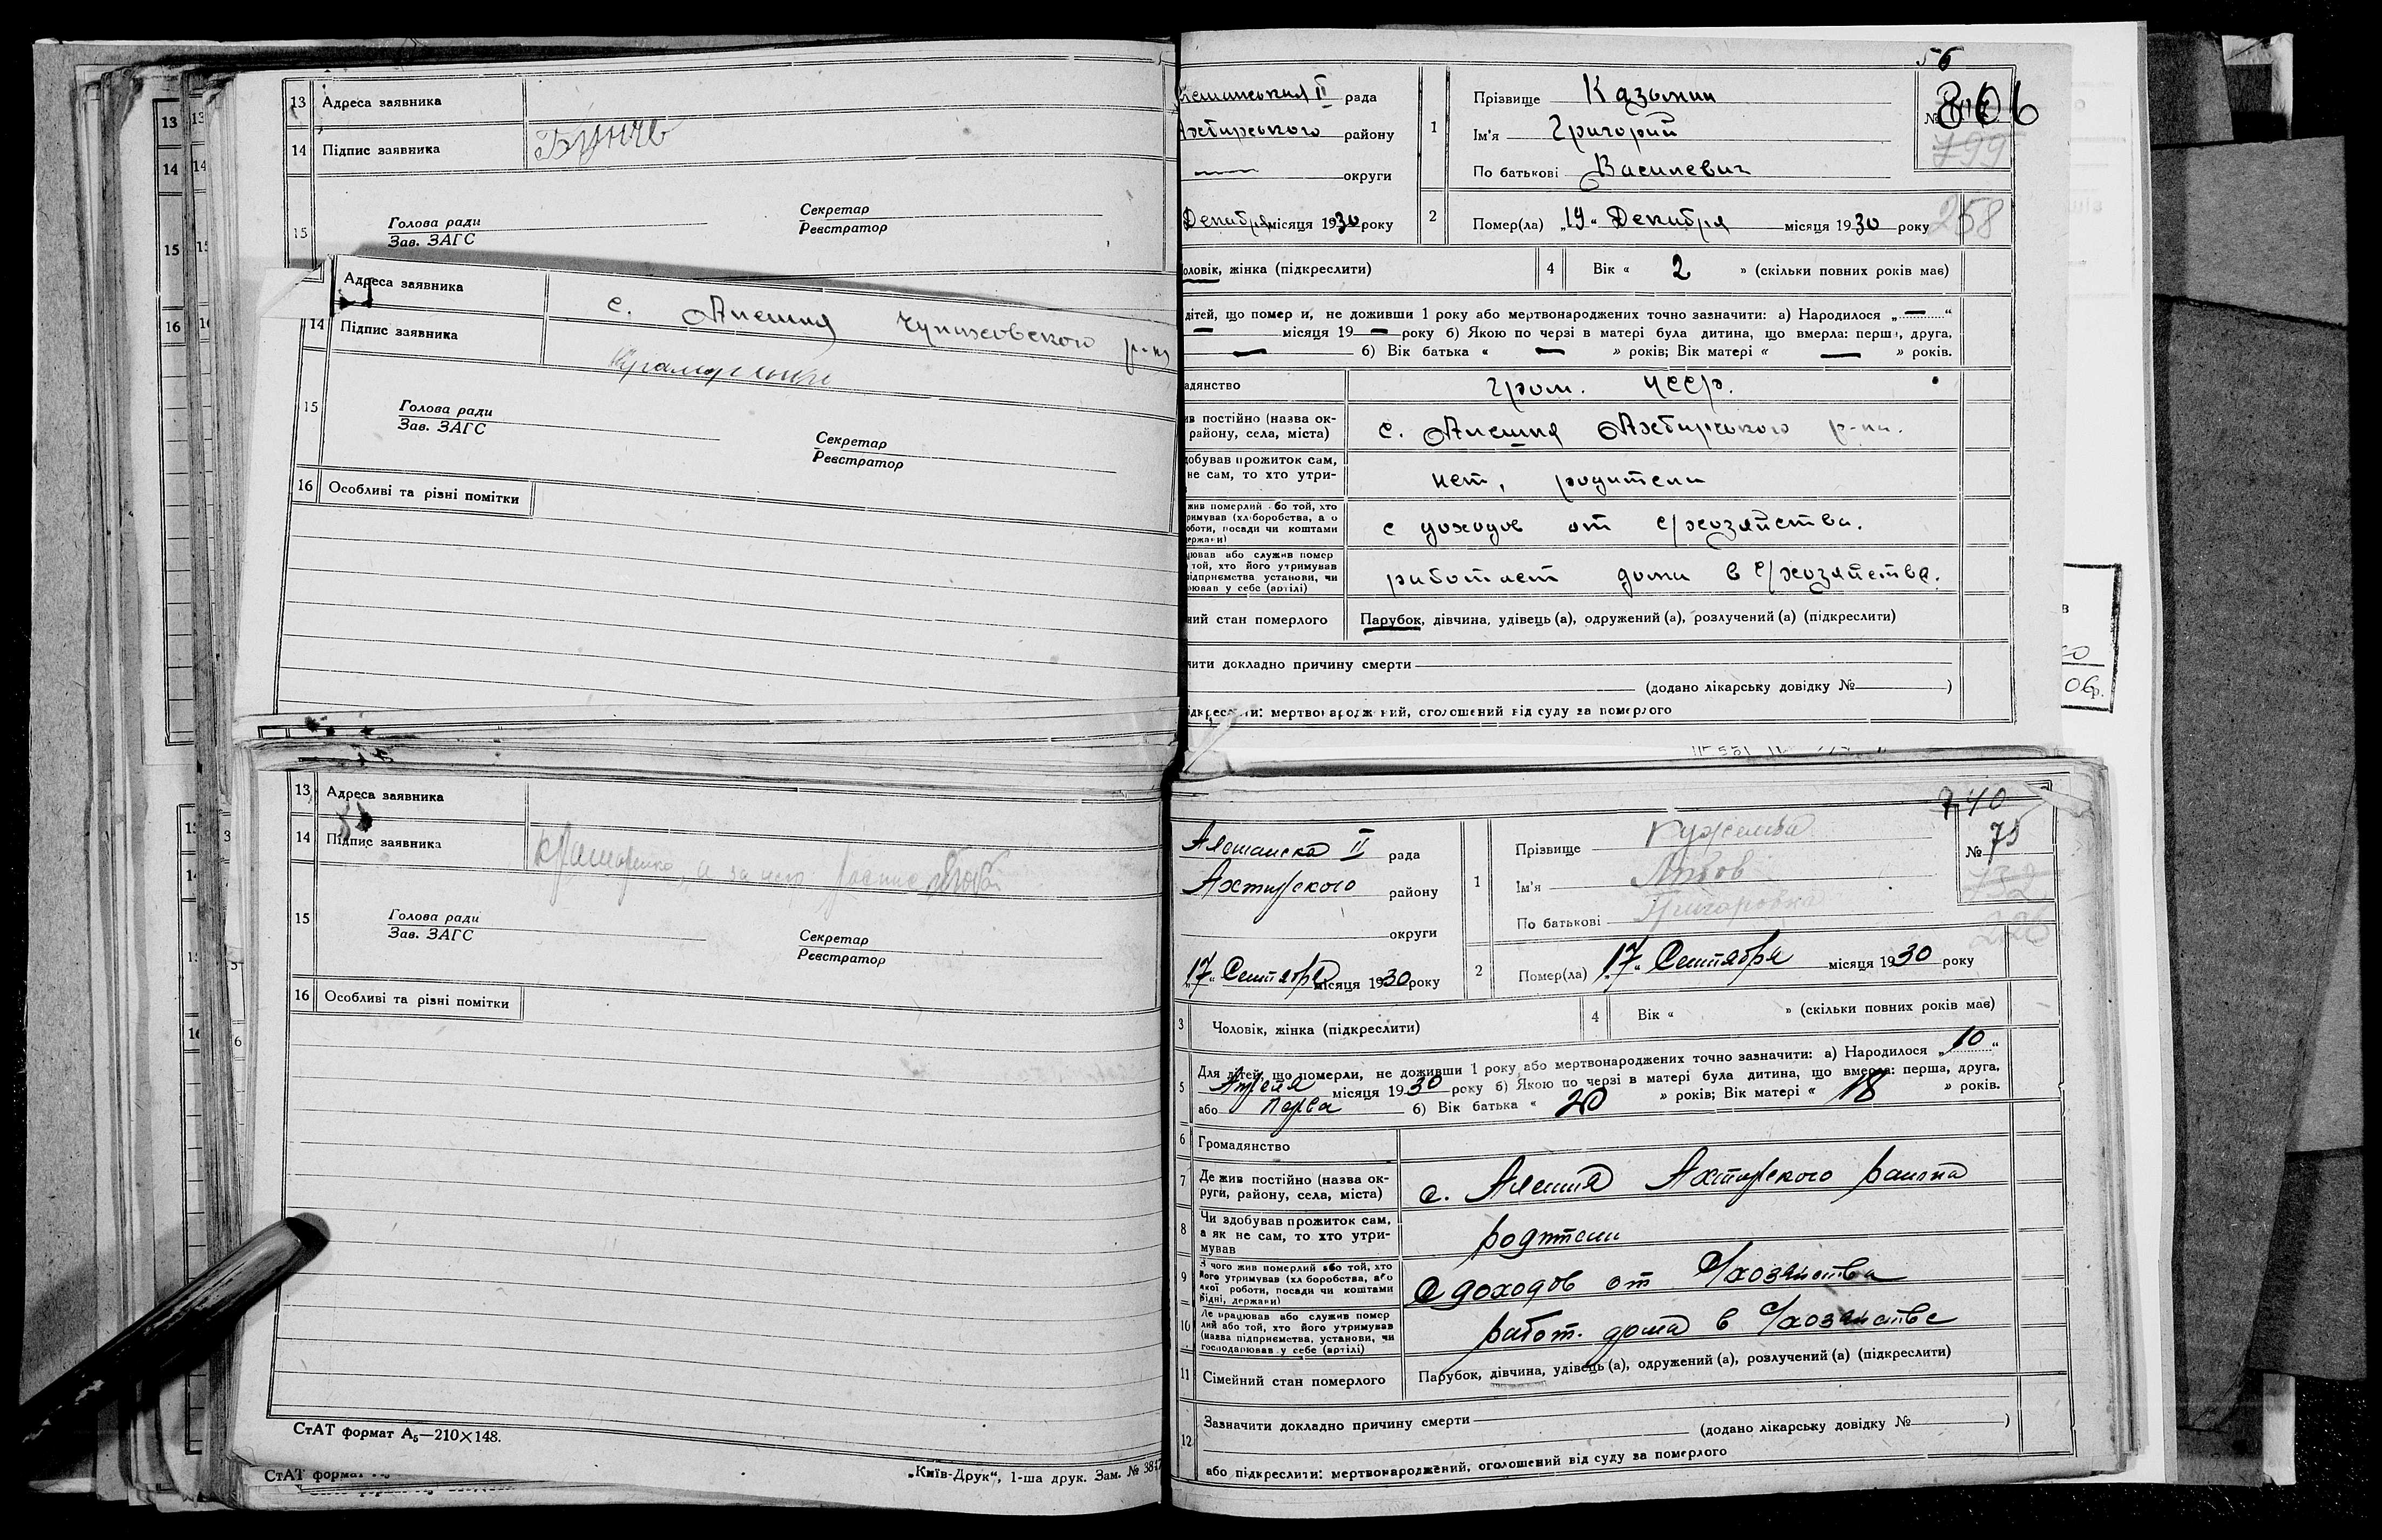 13 Адреса заявника
14 Підпис заявника
15
Голова ради
Зав. ЗАГС
Секретар
Реєстратор
Адреса заявника
с. Алешня Чупаховского р-на
14 Підпис заявника
15
Голова ради
Зав. ЗАГС
Секретар
Реєстратор
16 Особливі та різні помітки
13 Адреса заявника
14 Підпис заявника
15
Голова ради
Зав. ЗАГС
Секретар
Реєстратор
16 Особливі та різні помітки
СтАТ формат А5—210×148.
„Київ-Друк“, 1-ша друк. Зам. №
56
II рада
Ахтирського району
округи
Декабря місяця 1930 року
1 Прізвище Казьмин
Ім'я Григорий
По батькові Василевич
№ 806
799
258
2 Помер(ла) „19“ Декабря місяця 1930 року
оловік, жінка (підкреслити)
4 Вік « 2 » (скільки повних років має)
дітей, що померли, не доживши 1 року або мертвонароджених точно зазначити: а) Народилося „—“
— місяця 19— року б) Якою по черзі в матері була дитина, що вмерла: перша, друга,
— б) Вік батька « — » років; Вік матері « — » років.
адянство гром. УССР.
ив постійно (назва ок-
району, села, міста) с. Алешня Ахтирського р-на.
добував прожиток сам,
не сам, то хто утри- нет, родители
жив померлий або той, хто
римував (хліборобства, а о
оботи, посади чи коштами
ержави) с доходов от с/хозяйства.
цював або служив помер
той, хто його утримував
підприємства установи, чи
рював у себе (артілі) работает дома в с/хозяйстве.
ний стан померлого Парубок, дівчина, удівець (а), одружений (а), розлучений (а) (підкреслити)
чити докладно причину смерти
(додано лікарську довідку № )
ідкреслити: мертвонароджений, оголошений від суду за померлого
740
Алешанска II рада
Ахтирского району
округи
„17“ Сентября місяця 1930 року
1 Прізвище
Ім'я
По батькові
№ 75
732
2 Помер(ла) „17“ Сентября місяця 1930 року
3 Чоловік, жінка (підкреслити)
4 Вік « » (скільки повних років має)
5 Для дітей, що померли, не доживши 1 року або мертвонароджених точно зазначити: а) Народилося „10“
Апреля місяця 1930 року б) Якою по черзі в матері була дитина, що вмерла: перша, друга,
або перва б) Вік батька « 20 » років; Вік матері « 18 » років.
6 Громадянство
7 Де жив постійно (назва ок-
руги, району, села, міста) с. Алешня Ахтирского района
8 Чи здобував прожиток сам,
а як не сам, то хто утри-
мував родители
9 З чого жив померлий або той, хто
його утримував (хліборобства, або
якої роботи, посади чи коштами
рідні, держави) с доходов от с/хозяйства
10 Де працював або служив помер
лий або той, хто його утримував
(назва підприємства, установи, чи
господарював у себе (артілі) работ. дома в с/хозяйстве
11 Сімейний стан померлого Парубок, дівчина, удівець (а), одружений (а), розлучений (а) (підкреслити)
12 Зазначити докладно причину смерти
(додано лікарську довідку № )
або підкреслити: мертвонароджений, оголошений від суду за померлого